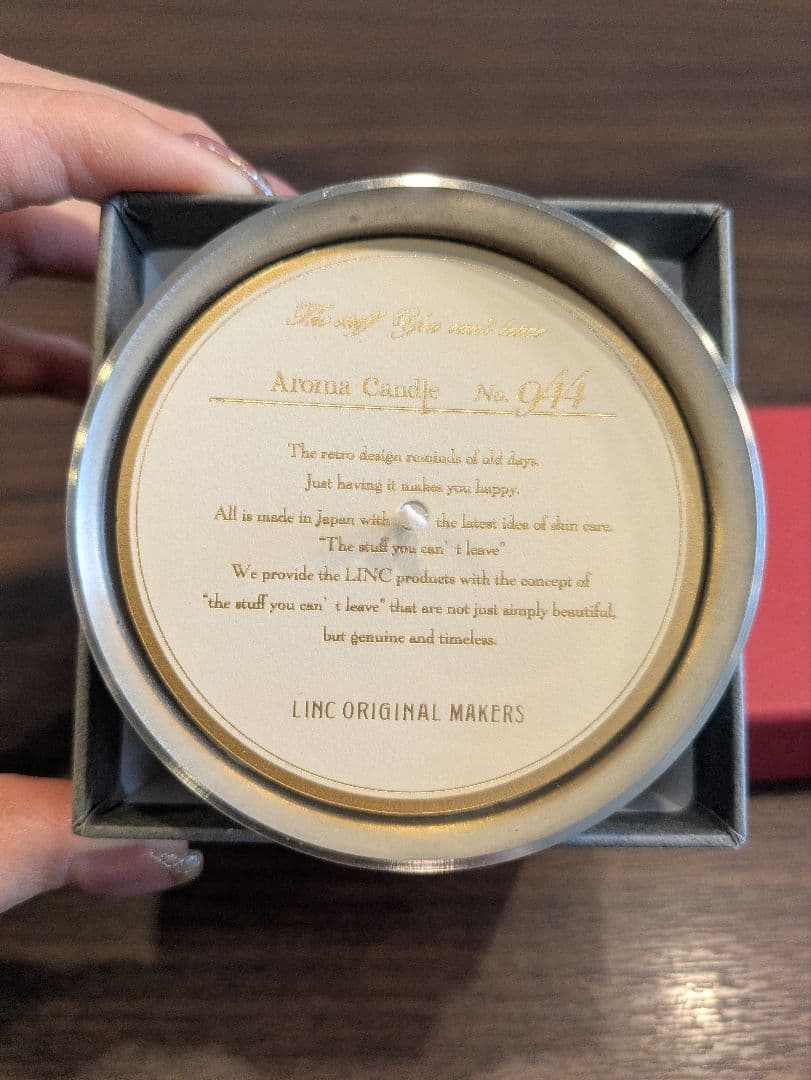 The stuff You can't leave
Aroma Candle No. 944
The retro design reminds of old days.
Just having it makes you happy.
All is made in Japan with the latest idea of skin care.
"The stuff you can' t leave"
We provide the LINC products with the concept of
"the stuff you can' t leave" that are not just simply beautiful,
but genuine and timeless.
LINC ORIGINAL MAKERS